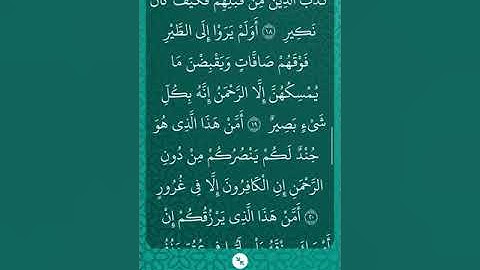 كَذَّبَ الَّذِينَ مِنْ قَبْلِهِمْ فَكَيْفَ كَانَ
نَكِيرِ ۝١٨ أَوَلَمْ يَرَوْا إِلَى الطَّيْرِ
فَوْقَهُمْ صَافَّاتٍ وَيَقْبِضْنَ مَا
يُمْسِكُهُنَّ إِلَّا الرَّحْمَنُ إِنَّهُ بِكُلِّ
شَيْءٍ بَصِيرٌ ۝١٩ أَمَّنْ هَذَا الَّذِى هُوَ
جُنْدٌ لَكُمْ يَنْصُرُكُمْ مِنْ دُونِ
الرَّحْمَنِ إِنِ الْكَافِرُونَ إِلَّا فِى غُرُورٍ
۝٢٠ أَمَّنْ هَذَا الَّذِى يَرْزُقُكُمْ إِنْ